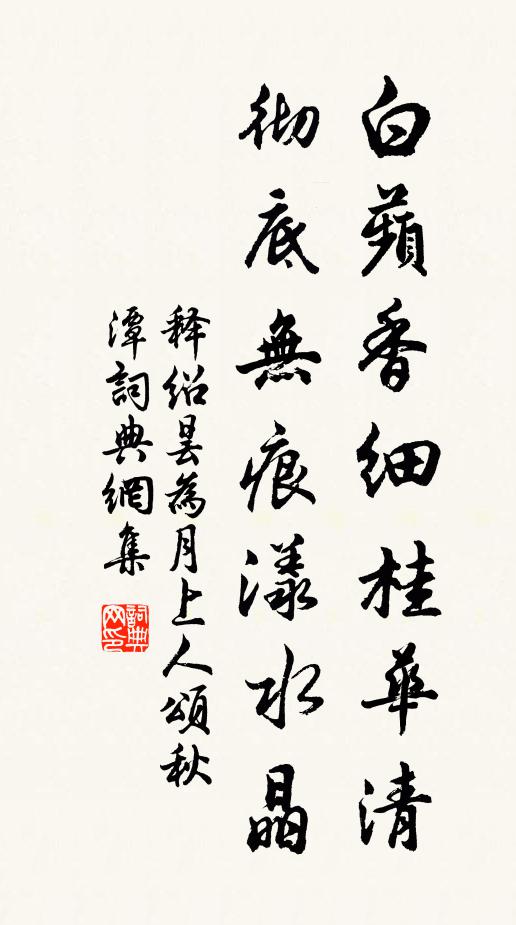 白蘋香細桂華清
彻底無痕漾水晶
释绍昙為月上人頌秋
潭詞典網集
詞典网印